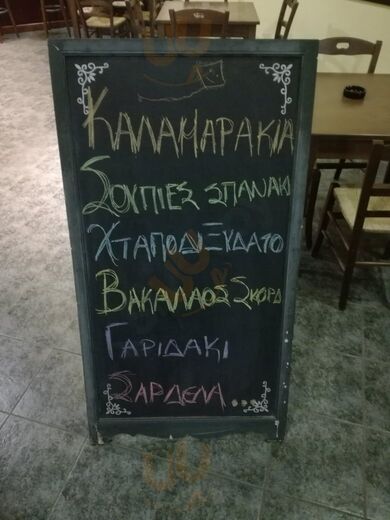 ΚΑΛΑΜΑΡΑΚΙΑ
ΣΟΥΠΙΕΣ ΣΠΑΝΑΚΙ
ΧΤΑΠΟΔΙ ΞΥΔΑΤΟ
ΒΑΚΑΛΑΟΣ ΣΚΟΡΔ
ΓΑΡΙΔΑΚΙ
ΣΑΡΔΕΛΑ...